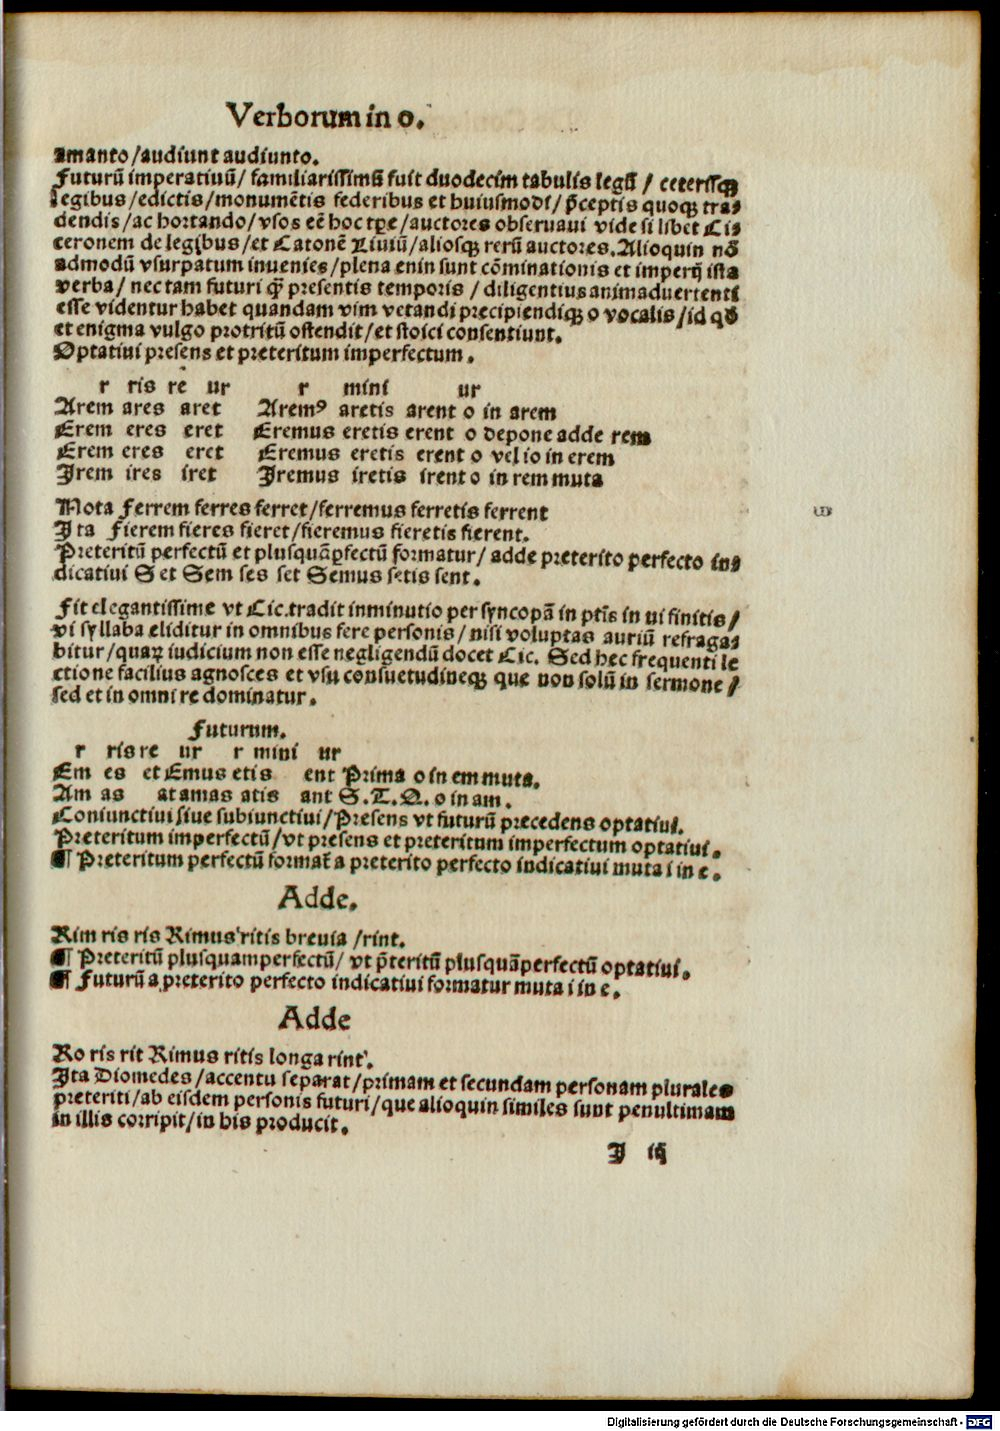 Verborum in o.
amanto/audiunt audiunto.
Futurū imperatiuū/ familiarissimū fuit duodecim tabulis legū / ceterisqꝫ
legibus/edictis/monumētis federibus et huiusmodi/ p̄ceptis quoqꝫ tra⸗
dendis/ac hortando/vsos eē hoc tp̄e/auctores obseruaui vide si libet Ci⸗
ceronem de legibus/et Catonē Liuiū/aliosqꝫ rerū auctores.Alioquin nō
admodū vsurpatum inuenies/plena enin sunt cōminationis et imperij ista
verba/ nec tam futuri qꝫ̄ presentis temporis / diligentius animaduertenti
esse videntur habet quandam vim vetandi precipiendiqꝫ o vocalis/id qđ
et enigma vulgo protritū ostendit/et stoici consentiunt.
Optatiui presens et preteritum imperfectum.
r ris re ur r mini ur
Arem ares aret Aremꝰ aretis arent o in arem
Erem eres eret Eremus eretis erent o depone adde rem
Erem eres eret Eremus eretis erent o vel io in erem
Irem ires iret Iremus iretis irent o in rem muta
Nota ferrem ferres ferret/ferremus ferretis ferrent
Ita fierem fieres fieret/fieremus fieretis fierent.
Preteritū perfectū et plusquāꝑfectū formatur/ adde preterito perfecto in⸗
dicatiui S et Sem ses set Semus setis sent.
Fit elegantissime vt Cic.tradit inminutio per syncopā in ptīs in ui finitis/
vi syllaba eliditur in omnibus fere personis/ nisi voluptas auriū refraga⸗
bitur/quaꝝ iudicium non esse negligendū docet Cic. Sed hec frequenti le
ctione facilius agnosces et vsu consuetudineqꝫ que non solū in sermone/
sed et in omni re dominatur.
Futurum.
r ris re ur r mini ur
Em es et Emus etis ent Prima o in em muta.
Am as at amas atis ant S.T.Q. o in am.
Coniunctiui siue subiunctiui/Presens vt futurū precedens optatiui.
Preteritum imperfectū/vt presens et preteritum imperfectum optatiui.
¶ Preteritum perfectū format̄ a preterito perfecto indicatiui muta i in e.
Adde.
Rim ris ris Rimus ritis breuia /rint.
¶ Preteritū plusquamperfectū/ vt p̄teritū plusquāperfectū optatiui.
¶ Futurū a preterito perfecto indicatiui formatur muta i in e.
Adde
Ro ris rit Rimus ritis longa rint.
Ita Diomedes/accentu separat/primam et secundam personam plurales
preteriti/ab eisdem personis futuri/que alioquin similes sunt penultimam
in illis corripit/in his producit.
I iij
Digitalisierung gefördert durch die Deutsche Forschungsgemeinschaft - DFG